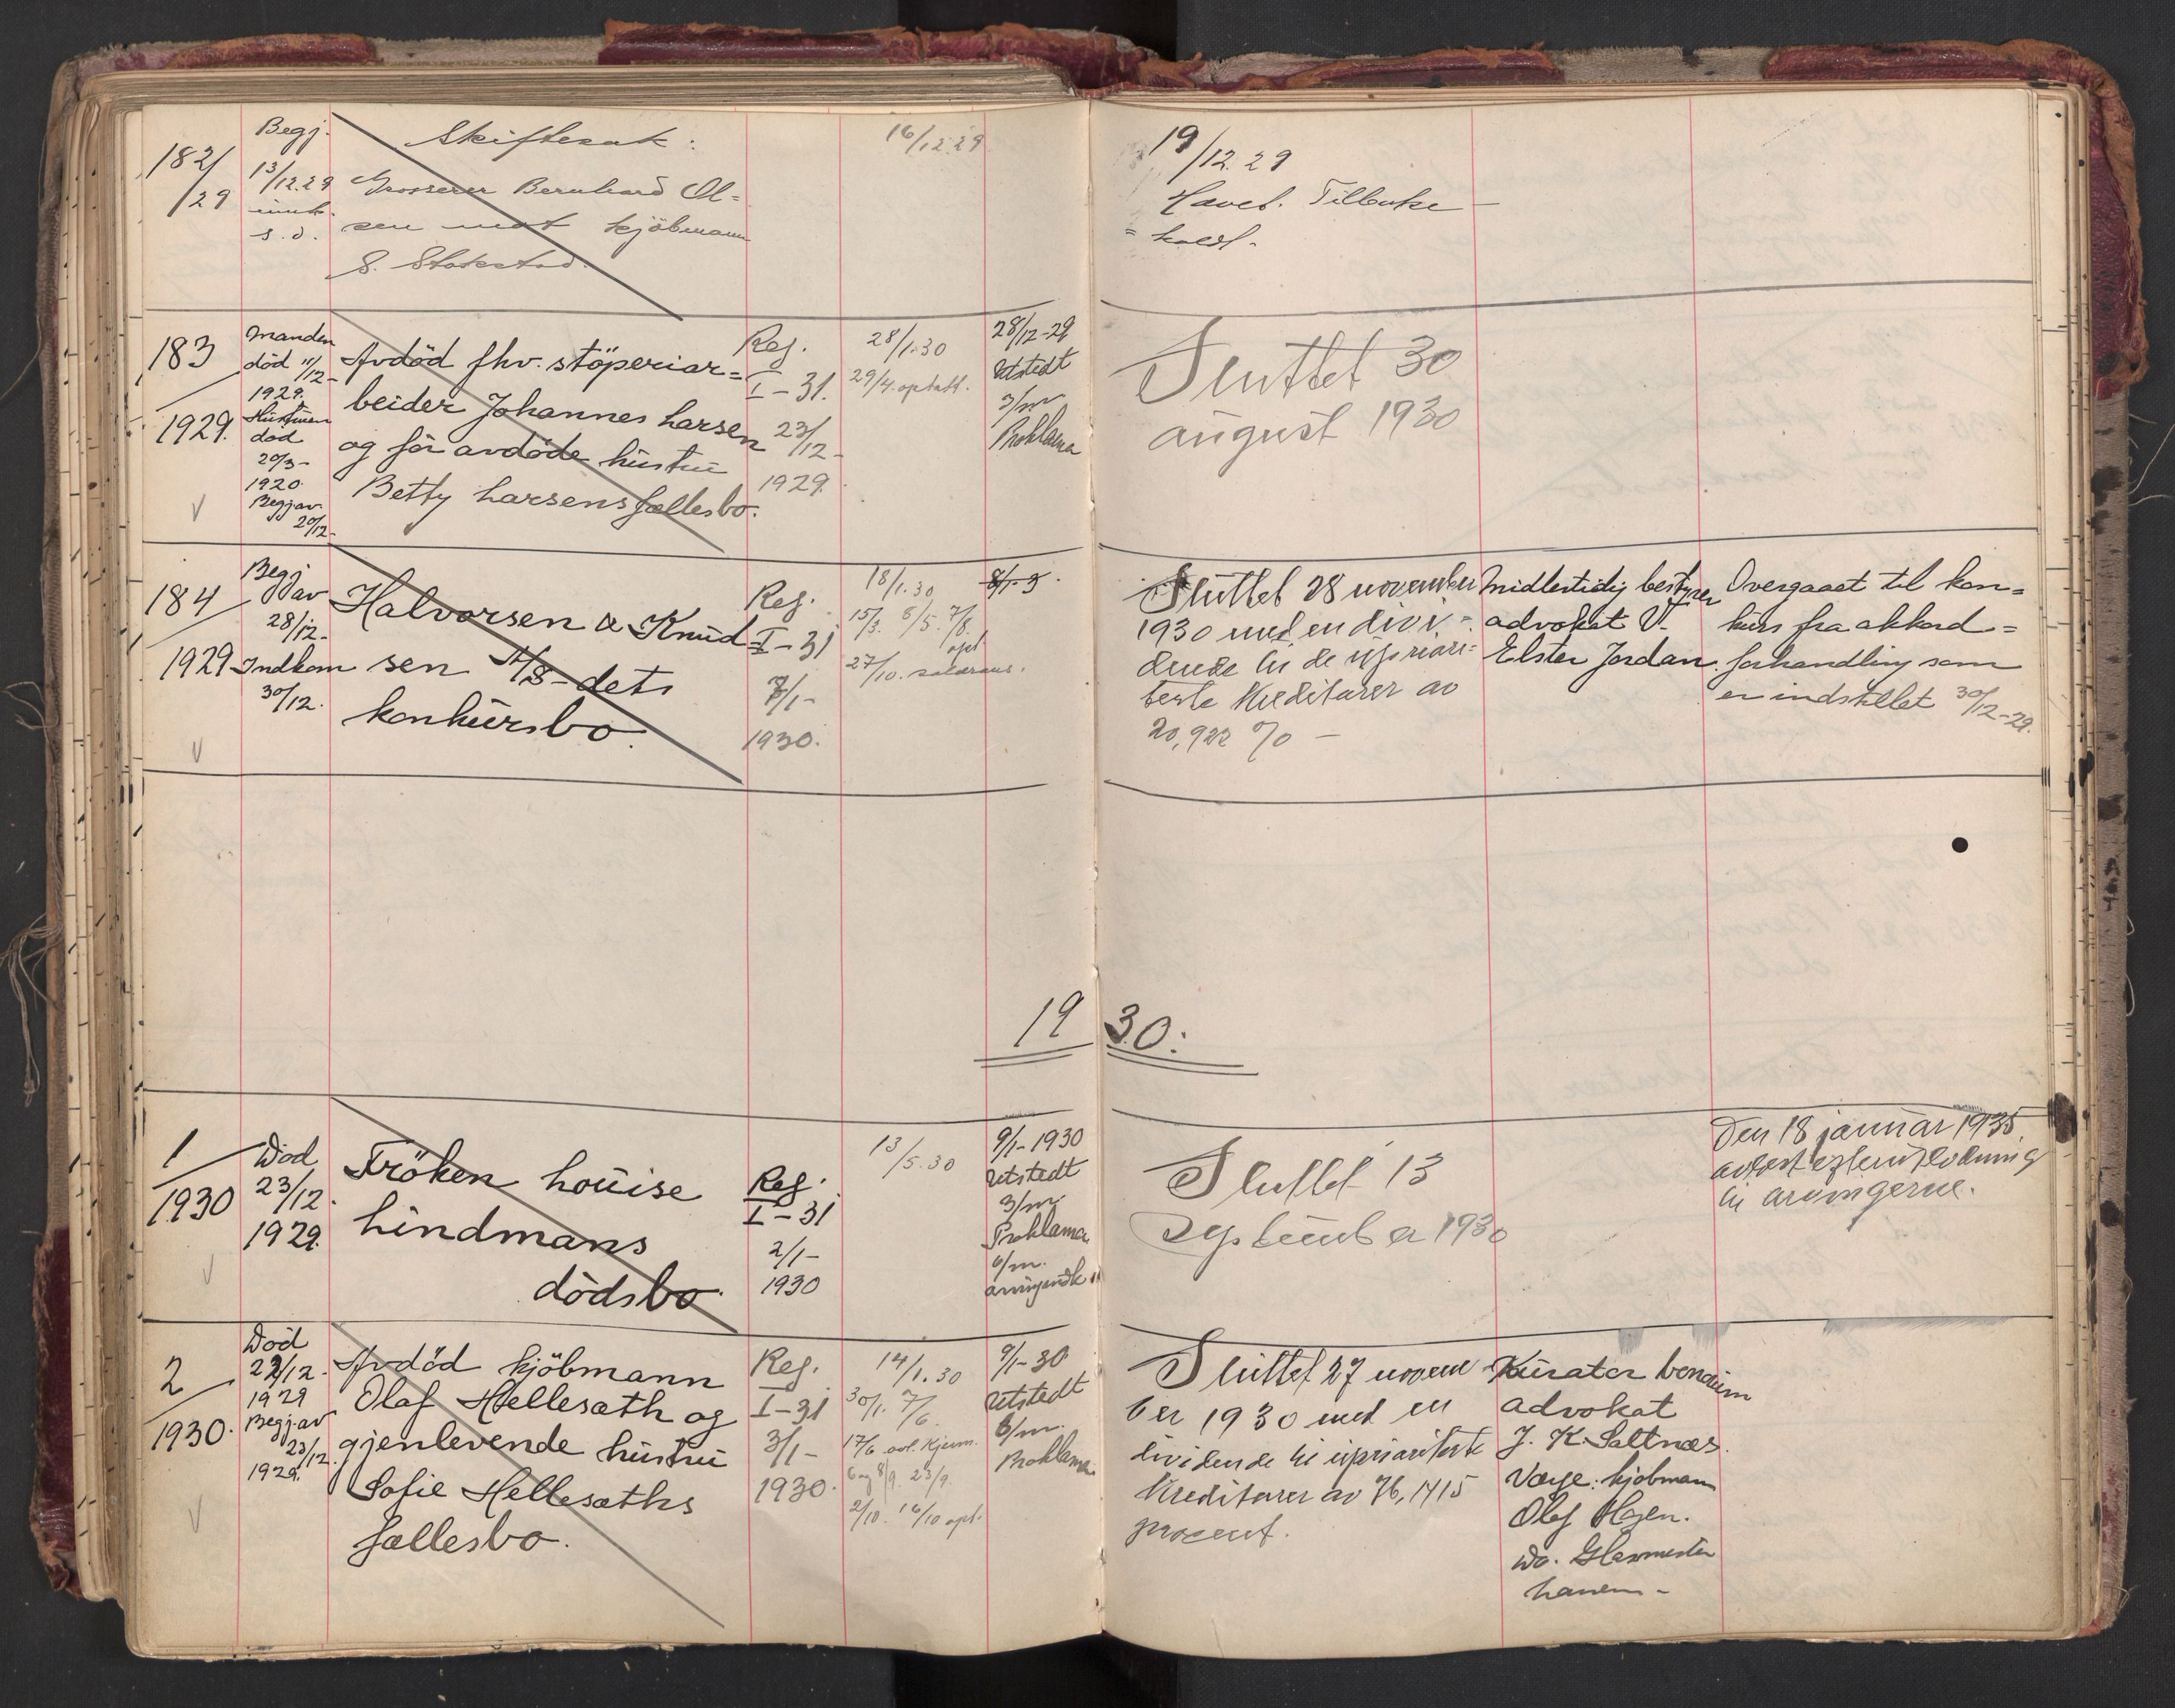 182/
/29
Begj.
13/12.29
innk.
s. d.
Skiftesak:
Grosserer Bernhard Ol=
sen mot kjöbmann
S. Stokstad.
16/12.29
19/12.29
Hævet. Tilbake
= kaldt.
183
1929.
Manden
död 11/12-
1929.
Hustruen
död
20/3-
1920.
Begj av
20/12-
Avdöd fhv. stöperiar=
beider Johannes Larsen
og før avdöde hustru
Betty Larsens fællesbo.
Reg.
I-31.
23/12-
1929.
28/1.30
29/4. optatt.
28/12-29
Utstedt
3/m
Proklama
Sluttet 30
august 1930
184
1929
Begj
av
28/12-
Indkom
30/12.
Halvorsen & Knud
sen A/S-dets
konkursbo.
Reg.
I-31
7/1-
1930.
18/1.30
15/3. 6/5. 7/8.
opt
27/10.
8/1-3.
Sluttet 28 november
1930 med en divi=
dende til de upriori=
terte kreditorer av
20,922 % —
Midlertidig bestyrer
advokat V.
Elster Jordan.
Overgaaet til kon=
kurs fra akkord=
forhandling som
er indstillet 30/12-29.
19 30:
1
1930
Död
23/12.
1929.
Fröken Louise
Lindmans
dödsbo.
Reg.
I-31
2/1-
1930
13/5.30
9/1-1930
Utstedt
3/m
Proklama
6/m.
arvingindk.
Sluttet 13
september 1930
Den 18 januar 1935
avholdt efterutlodning
til arvingerne.
2
1930.
Död
22/12.
1929
Begj. av
23/12.
1929.
Avdöd kjöbmann
Olaf Hellesæth og
gjenlevende hustru
Sofie Hellesæths
fællesbo.
Reg.
I-31
3/1-
1930.
14/1.30
30/1. 7/6.
17/6 avl. Kjenn.
6 og 8/9. 23/9.
2/10. 16/10 opt.
9/1-30
Utstedt
6/m.
Proklama
Sluttet 27 novem
ber 1930 med en
dividende til uprioriterte
kreditorer av 76,1415
procent.
Kurator bonorum
advokat
J. K. Saltnæs.
Værge: kjöbmann
Olaf Hagen.
Do. Glasmester